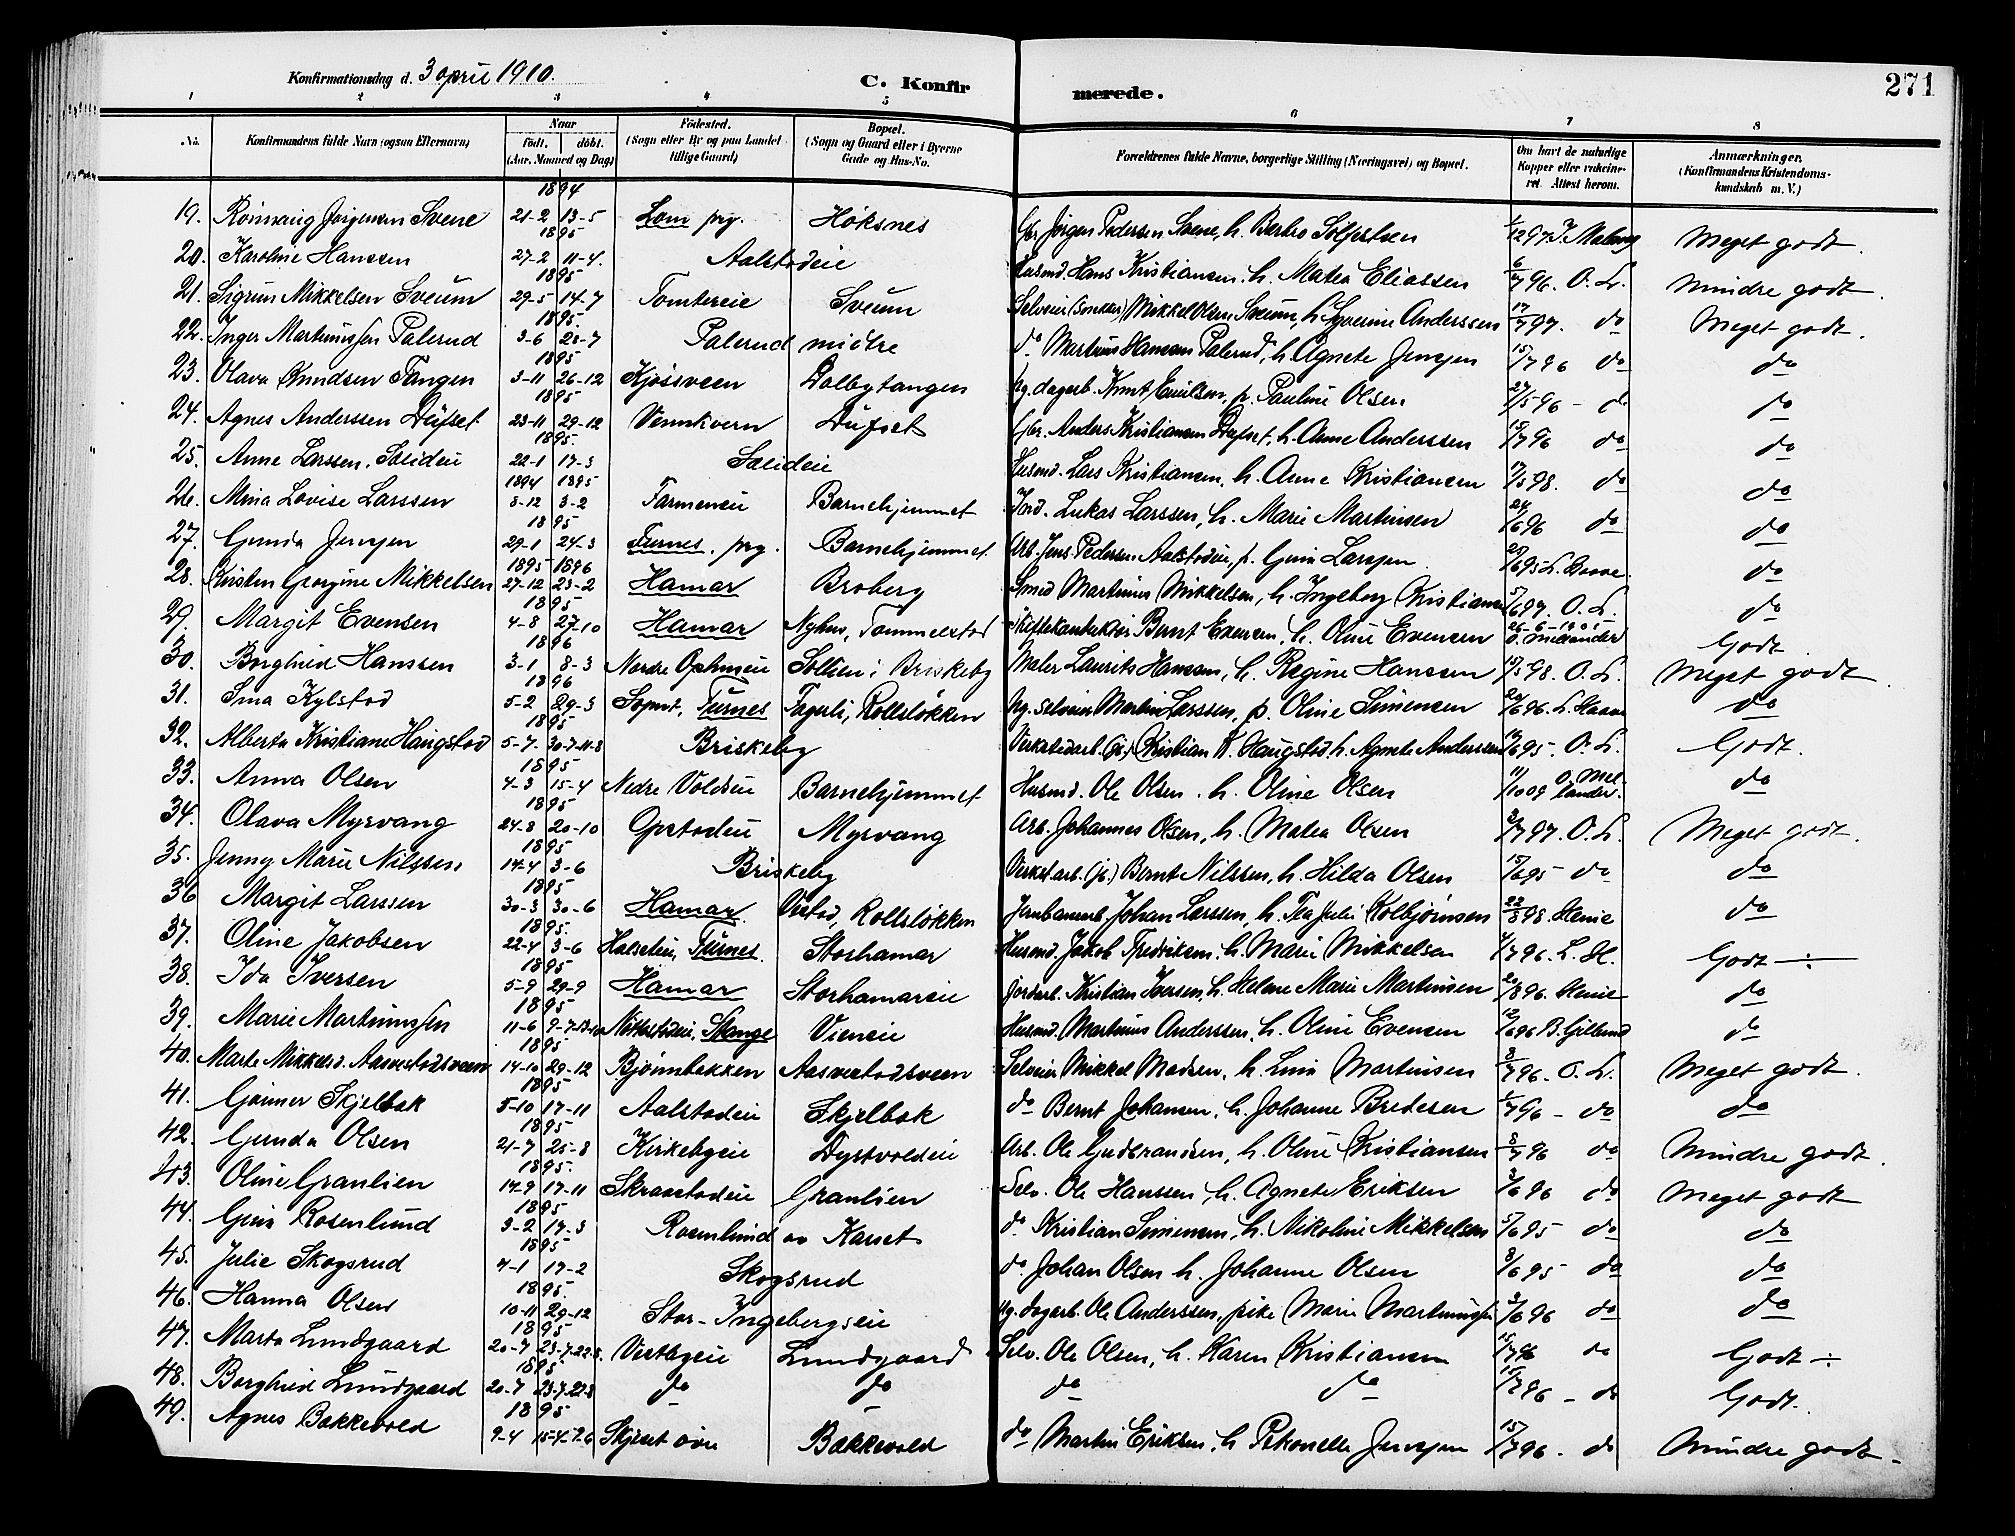 Konfirmationsdag d. 3 april 1910.
C. Konfirmerede.
271
1 2 3 4 5 6 7 8
No. Konfirmandens fulde Navn (ogsaa Efternavn) Naar født. døbt. (Aar, Maaned og Dag) Fødested. (Sogn eller By og paa Landet tillige Gaard) Bopæl. (Sogn og Gaard eller i Byerne Gade og Hus-No. Forældrenes fulde Navne, borgerlige Stilling (Næringsvei) og Bopæl. Om havt de naturlige Kopper eller vakcineret. Attest herom. Anmærkninger. (Konfirmandens Kristendomskundskab m. V.)
1894
19. Rønnaug Jørgensen Svene 21-2 13-5 Lom prg. Høksnes Gbr. Jørgen Pedersen Svene, h. Berthe 1/12 97 Meget godt.
1895
20. Karoline Hanssen 27-2 11-4. Aalstadeie Husmd. Hans Kristiansen. h. Matea Eliassen 6/7 96. O. L. Mindre godt.
1895
21. Sigrun Mikkelsen Sveum 29-5 14-7 Tomtereie Sveum Selveier (Snekker) Mikkel Olsen Sveum, h. Syverine Anderssen 17/7 97. do Meget godt.
1895
22. Inger Martinussen Palerud 3-6 28-7 Palerud midtre do Martinus Hansen Palerud, h. Agnete Jenssen 15/7 96 do do
1895
23. Olava Knudsen Tangen 3-11 26-12 Kjøsveen Dolbytangen Ug. dagarb. Knut Emilsen, p. Pauline Olsen 27/5 96 - do do
1895
24. Agnes Anderssen Dufset 23-11 29-12 Vennkvern Dufset Gbr. Anders Kristiansen Dufset, h. Anne Anderssen 15/7 96 do do
1895
25. Anne Larssen, Solideie 22-1 17-3 Solideie Husmd. Lars Kristiansen, h. Anne Kristiansen 98. do do
1894 1895
26. Mina Lovise Larssen 8-12 3-2 Farmeneie Barnehjemmet Jord. Lukas Larssen, h. Marie Martinsen 24/6 96 do do
1895
27. Gunda Jenssen 29-1 24-3 Furnes. prg. Barnehjemmet. Arb. Jens Pedersen Aalstadeie, p. Gina Larssen 25/6 95 do
1895 1896
28. Kirsten Georgine Mikkelsen 27-12 23-2 Hamar Broberg Smed Martinus Mikkelsen, h. Ingeborg Kristiansen 5/6 97. O. L. do
1895
29. Margit Evensen 4-8 27-10 Hamar Nyhus, Tommelstad Bernt Evensen, h. Oline Evensen 26-6-1901 O. Mellander Godt
1896
30. Borghild Hanssen 3-1 8-3 Nordre Ophuseie Sollien i Briskeby Maler Laurits Hansen, h. Regine Hanssen 98. O. L. Meget godt.
1896
31. Sina Kylstad 5-2 29-3 Furnes Fagerli, Rollsløkken Ug. selveier Martin Larssen, p. Oline Simensen 20/6 96. L. Haave do
1895
32. Alberta Kristiane Haugstad 5-7. 30-7-11-8 Briskeby Verkstedarb. Kristian K. Haugstad, h. Agnete Anderssen 95 - O. L. Godt.
1895
33. Anna Olsen 4-3 15-4 Nedre Voldeie Barnehjemmet Husmd. Ole Olsen. h. Oline Olsen 11/10 09 O. Mellander. do
1895
34. Olava Myrvang 24-8 20-10 Opstadeie Myrvang Arb. Johannes Olsen, h. Matea Olsen 2/7 97. O. L. Meget godt.
1895
35. Jenny Marie Nilssen 14-4 3-6 Briskeby Verkst.arb. Bernt Nilssen, h. Hilda Olsen 15/6 95 do do
1895
36 Margit Larssen 30-3 30-6 Hamar. Vestad, Rollsløkken Jernbanearb. Johan Larssen, h. Tea Julie Kolbjørnsen 22/8 98. Henie do
1895.
37. Oline Jakobsen 22-4 3-6 Halseteie, Furnes. Storhamar Husmd. Jakob Fredriksen. h. Marie Mikkelsen 4/7 96. L. H. Godt ÷
1895
38. Ida Iversen 5-9 29-9 Hamar Storhamareie Jordarb. Kristian Iversen, h. Helene Marie Martinsen 20/8 96. Henie do
1895
39. Marie Martinussen 11-6 9-7-13-10 Stange Vieneie Husmd. Martinus Anderssen, h. Oline Evensen 12/6 96 B. Gillund do
1895
40. Marte Mikkelsd. Aasvestadsveen 14-10 29-12 Bjørnbakken Aasvestadsveen Selveier Mikkel Madsen, h. Lina Martinsen 3/7 96. O. L. Meget godt.
1895
41. Gjøimer Skjelbak 5-10 17-11 Aalstadeie Skjelbak do Bernt Johansen, h. Johanne Bredesen 1/7 96 - do do
1895
42. Gunda Olsen 21-7 25-8 Kirkebyeie Dystvoldeie Arb. Ole Gudbrandsen, h. Oline Kristiansen 8/7 96 do Mindre godt.
1895.
43. Oline Granlien 14-9 17-11 Skraastadeie Granlien Selv. Ole Hanssen, h. Agnete Eriksen 3/6 96 do Meget godt
1895
44. Gina Rosenlund 3-2 17-3 Rosenlund av Karset do Kristian Simensen, h. Nikoline Mikkelsen 5/6 95 do do
1895
45. Julie Skogsrud 7-1 17-2 Skogsrud do. Johan Olsen h. Johanne Olsen 8/6 95 do do
1895.
46. Hanna Olsen 10-11 29-12 Stor-Ingebergseie Ug. dagarb. Ole Anderssen, pike Marie Martinussen 3/6 96 do do
1895
47. Marta Lundgaard 20-7 23-7-22-8. Vestbyeie Lundgaard Selv. Ole Olsen, h. Karen Kristiansen 15/7 96 do Godt ÷
1895
48. Borghild Lundgaard 20-7 23-7-22-8 do do do do 15/7 96 - do Godt.
1895
49. Agnes Bakkevold 9-4 15-4-9-6 Skjeset øvre Bakkevold do Martin Eriksen, h. Petronelle Jenssen 15/7 96. - do Mindre godt.